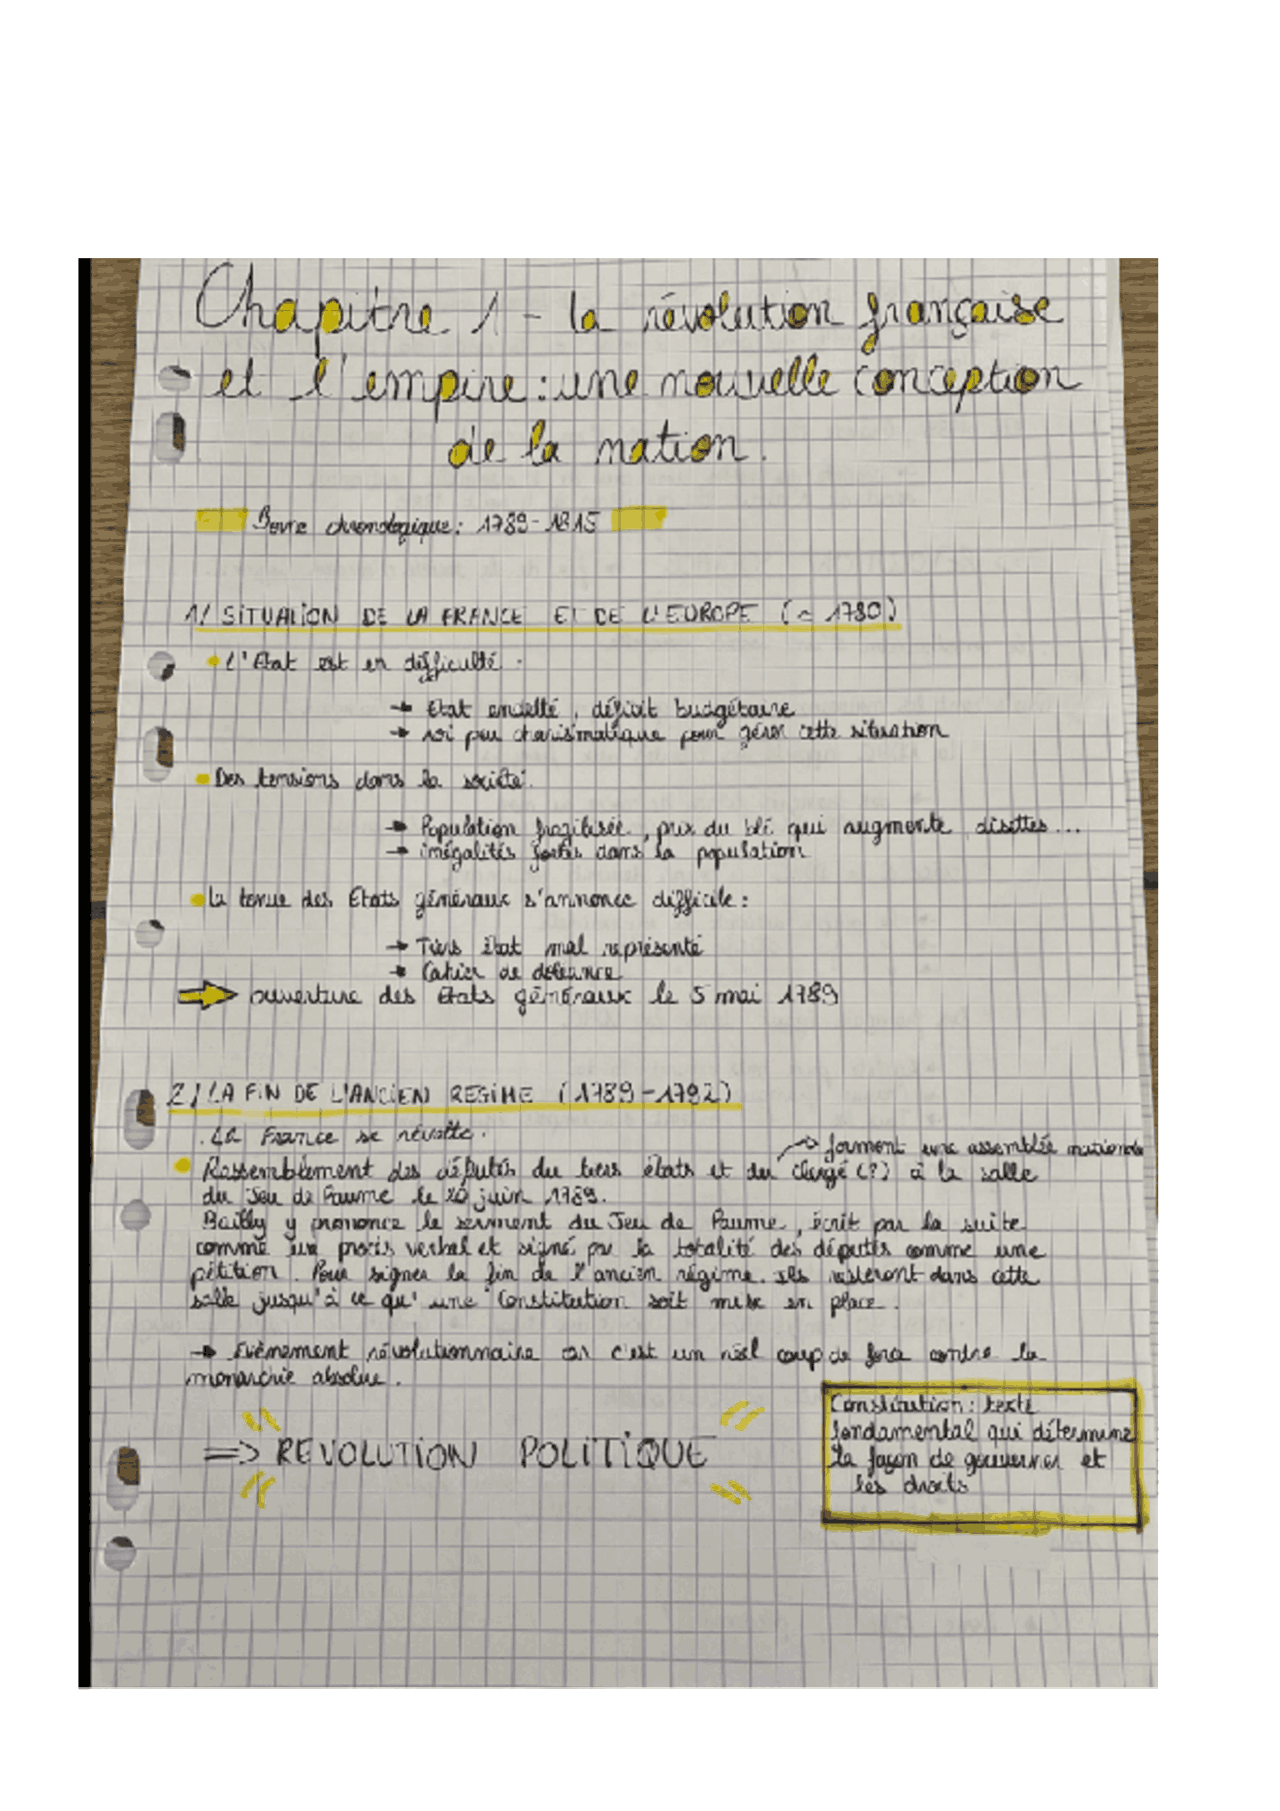 Chapitre 1 - la révolution française
et l'empire : une nouvelle conception
de la nation.
Borne chronologique : 1789-1815
1/ SITUATION DE LA FRANCE ET DE L'EUROPE (≈ 1780)
• L'Etat est en difficulté.
→ Etat endetté, déficit budgétaire
→ roi peu charismatique pour gérer cette situation
• Des tensions dans la société.
→ Population fragilisée, prix du blé qui augmente disettes...
→ inégalités fortes dans la population
• la tenue des Etats généraux s'annonce difficile :
→ Tiers état mal représenté
→ Cahier de doléance
⇒ ouverture des Etats généraux le 5 mai 1789
2/ LA FIN DE L'ANCIEN REGIME (1789-1792)
. La France se révolte.
→ forment une assemblée nationale
• Rassemblement des députés du tiers états et du clergé (?) à la salle
du Jeu de Paume le 20 juin 1789.
Bailly y prononce le serment du Jeu de Paume, écrit par la suite
comme un procès verbal et signé par la totalité des députés comme une
pétition. Pour signer la fin de l'ancien régime. Ils resteront dans cette
salle jusqu'à ce qu'une Constitution soit mise en place.
→ Evènement révolutionnaire car c'est un réel coup de force contre la
monarchie absolue.
=> REVOLUTION POLITIQUE
Constitution : texte
fondamental qui détermine
la façon de gouverner et
les droits